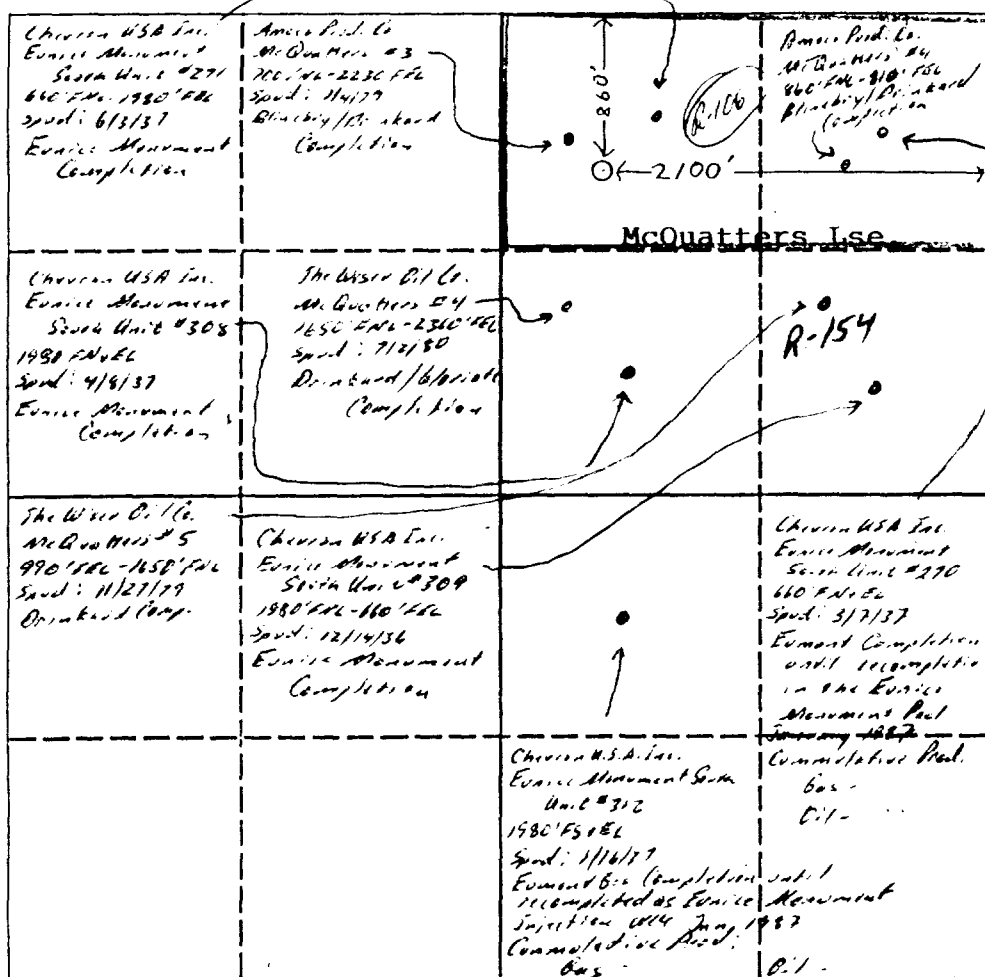 Chevron USA Inc.
Eunice Monument
South Unit #271
660' FNL-1980' FEL
Spud: 6/3/37
Eunice Monument
Completion
Amoco Prod. Co
McQuatters #3
700' FNL-2230' FEL
Spud:
Blinebry/Drinkard
Completion
860'
2100'
R-106
Amoco Prod. Co.
McQuatters #4
860' FNL-810' FEL
Blinebry/Drinkard
Completion
McQuatters Lse
Chevron USA Inc.
Eunice Monument
South Unit #308
1980 FN&EL
Spud: 4/8/37
Eunice Monument
Completion
The Wiser Oil Co.
McQuatters #4
1650' FNL-2360' FEL
Spud: 7/2/80
Drinkard/
Completion
R-154
The Wiser Oil Co.
McQuatters #5
990' FEL-1650' FNL
Spud: 11/27/79
Drinkard Comp.
Chevron USA Inc.
Eunice Monument
South Unit #309
1980' FNL-660' FEL
Spud: 12/14/36
Eunice Monument
Completion
Chevron USA Inc.
Eunice Monument
South Unit #270
660' FN&EL
Spud: 3/7/37
Eumont Completion
until recompletio
in the Eunice
Monument Pool
January 1987
Cummulative Prod.
Gas -
Oil -
Chevron U.S.A. Inc.
Eunice Monument South
Unit #312
1980' FS&EL
Spud: 1/16/37
Eumont Gas Completion until
recompleted as Eunice Monument
Injection Well Jan, 1987
Cummulative Prod:
Gas -
Oil -